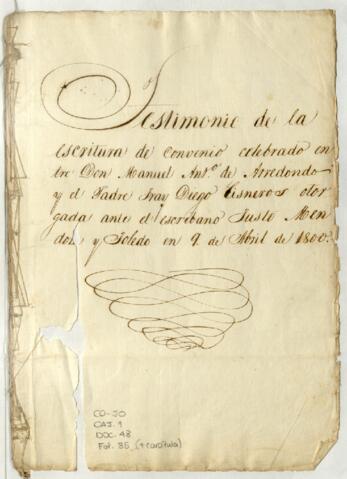 Testimonio de la
escritura de convenio celebrado en
tre Don Manuel Antº de Arredondo
y el Padre Fray Diego Cisneros otor
gada ante el escribano Justo Men
doza y Toledo en 9 de Abril de 1800.
CO-JO
CAJ. 1
DOC. 48
Fol. 35 (+carátula)